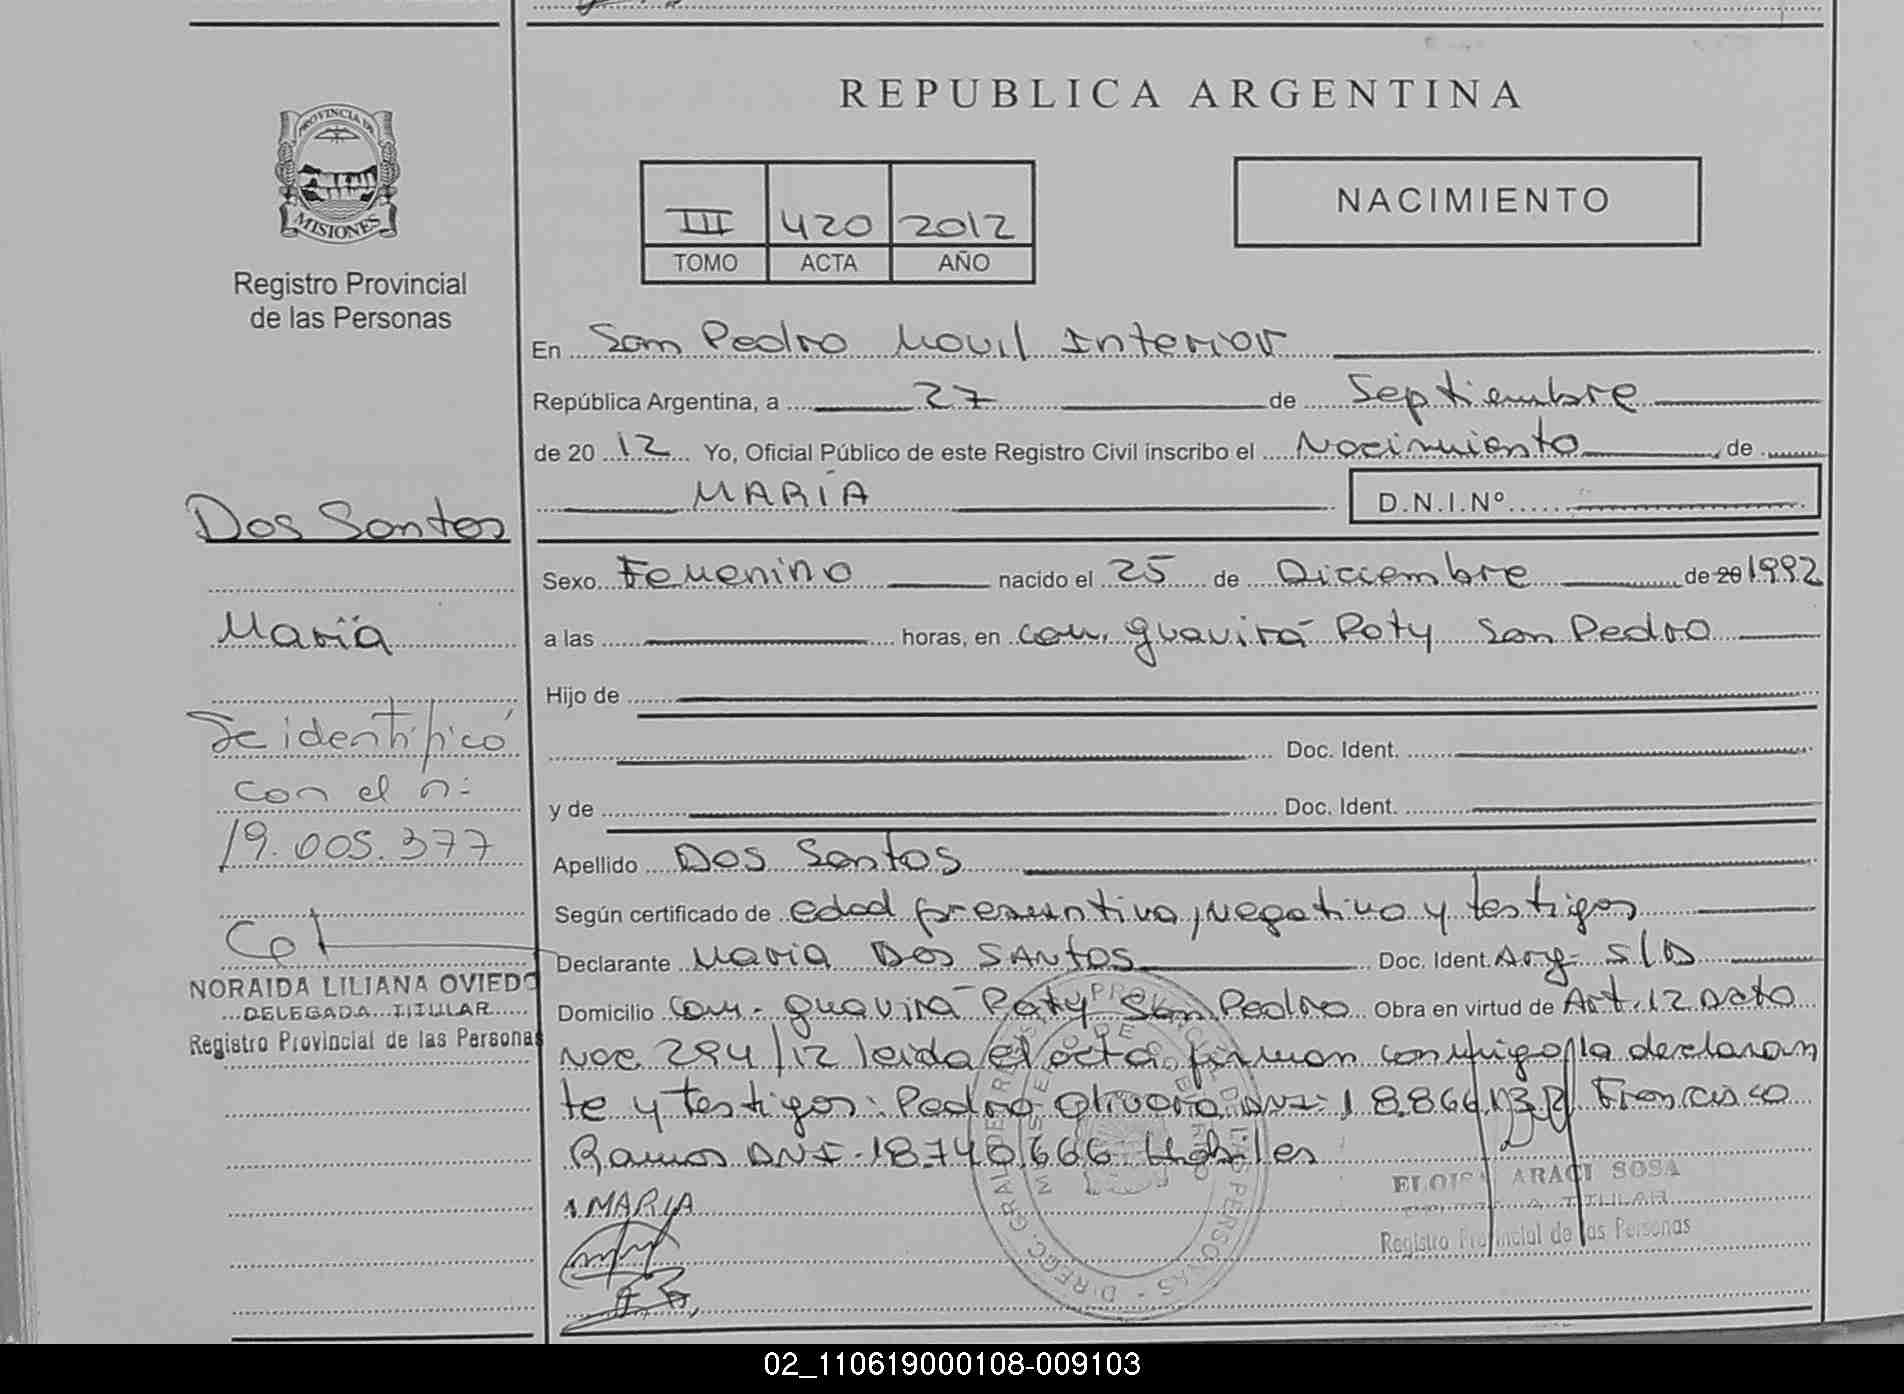 REPUBLICA ARGENTINA
PROVINCIA DE
MISIONES
Registro Provincial
de las Personas
III 420 2012
TOMO ACTA AÑO
NACIMIENTO
En San Pedro Movil Interior
República Argentina, a 27 de Septiembre
de 20 12 Yo, Oficial Público de este Registro Civil inscribo el Nacimiento de
MARÍA D.N.I.Nº
Dos Santos
Sexo Femenino nacido el 25 de Diciembre de 20 1992
María
a las horas, en com. guavirá Poty San Pedro
Hijo de
Se identificó
Doc. Ident.
con el n:
y de Doc. Ident.
19.005.377
Apellido Dos Santos
Según certificado de edad presuntiva, negativa y testigos
Declarante Maria Dos SANtos Doc. Ident. Arg- S/D
NORAIDA LILIANA OVIEDO
DELEGADA TITULAR
Registro Provincial de las Personas
Domicilio com. guavirá Poty San Pedro Obra en virtud de Art. 12 Dcto
Nac. 294/12 leida el acta, firman conmigo la declaran
te y testigos: Pedro Olivera DNI: 18.866. Francisco
Ramos DNI-18.740.666 Habiles
1 MARIA
ELOISA ARACI SOSA
TITULAR
Registro Provincial de las Personas
02_110619000108-009103